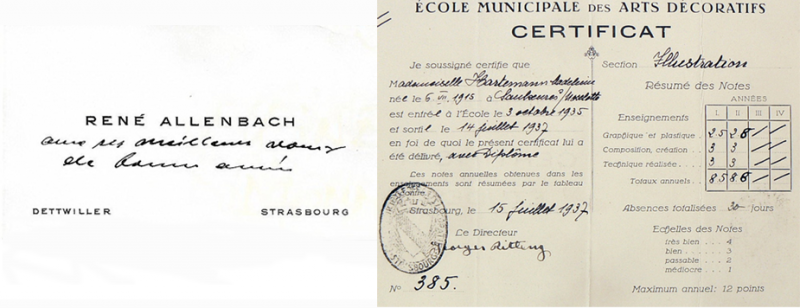 RENÉ ALLENBACH
avec ses meilleurs vœux
de bonne année
DETTWILLER
STRASBOURG
ÉCOLE MUNICIPALE DES ARTS DÉCORATIFS
CERTIFICAT
Je soussigné certifie que
Mademoiselle Hartemann Madeleine
née le 6 VII 1915 à
est entré à l'École le 3 octobre 1935
et sorti le 14 juillet 1937
en foi de quoi le présent certificat lui
a été délivré, avec Diplôme
Les notes annuelles obtenues dans les
enseignements sont résumées par le tableau
Strasbourg, le 15 juillet 1937
Le Directeur
Georges Ritleng
No 385.
Section Illustration
Résumé des Notes
ANNÉES
Enseignements I. II III IV
Graphique et plastique
Composition, création 3 3
Technique réalisée 3 3
Totaux annuels
Absences totalisées 30 jours
Echelles des Notes
très bien 4
bien 3
passable 2
médiocre 1
Maximum annuel: 12 points